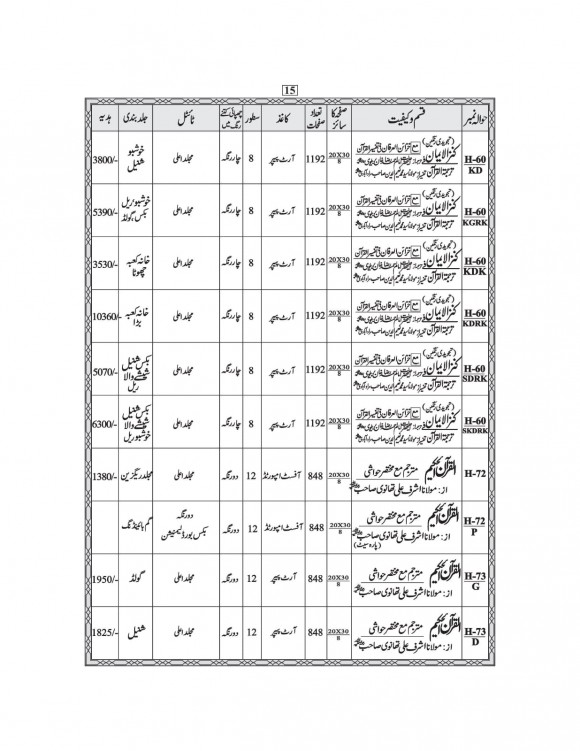 15
حوالہ نمبر قسم و کیفیت صفحہ کا سائز تعداد صفحات کاغذ سطور چھپائی کتنے رنگ میں ٹائٹل جلد بندی ہدیہ
H-60 KD (تجویدی رنگین) کنزالایمان مع خزائن العرفان فی تفسیر القرآن ترجمۃ القرآن 20X30/8 1192 آرٹ پیپر 8 چار رنگہ مجلد اعلیٰ خوشبو شنیل 3800/-
H-60 KGRK (تجویدی رنگین) کنزالایمان مع خزائن العرفان فی تفسیر القرآن ترجمۃ القرآن 20X30/8 1192 آرٹ پیپر 8 چار رنگہ مجلد اعلیٰ خوشبو ریل بکس گولڈ 5390/-
H-60 KDK (تجویدی رنگین) کنزالایمان مع خزائن العرفان فی تفسیر القرآن ترجمۃ القرآن 20X30/8 1192 آرٹ پیپر 8 چار رنگہ مجلد اعلیٰ خانہ کعبہ چھوٹا 3530/-
H-60 KDRK (تجویدی رنگین) کنزالایمان مع خزائن العرفان فی تفسیر القرآن ترجمۃ القرآن 20X30/8 1192 آرٹ پیپر 8 چار رنگہ مجلد اعلیٰ خانہ کعبہ بڑا 10360/-
H-60 SDRK (تجویدی رنگین) کنزالایمان مع خزائن العرفان فی تفسیر القرآن ترجمۃ القرآن 20X30/8 1192 آرٹ پیپر 8 چار رنگہ مجلد اعلیٰ بکس شنیل شیشے والا ریل 5070/-
H-60 SKDRK (تجویدی رنگین) کنزالایمان مع خزائن العرفان فی تفسیر القرآن ترجمۃ القرآن 20X30/8 1192 آرٹ پیپر 8 چار رنگہ مجلد اعلیٰ بکس شنیل شیشے والا خوشبو ریل 6300/-
H-72 القرآن الحکیم مترجم مع مختصر حواشی از: مولانا اشرف علی تھانوی صاحب 20X30/8 848 آفسٹ امپورٹڈ 12 دو رنگہ مجلد اعلیٰ مجلد ریگزین 1380/-
H-72 P القرآن الحکیم مترجم مع مختصر حواشی از: مولانا اشرف علی تھانوی صاحب (پارہ سیٹ) 20X30/8 848 آفسٹ امپورٹڈ 12 دو رنگہ دو رنگہ بکس بورڈ لیمینیشن گم بائنڈنگ
H-73 G القرآن الحکیم مترجم مع مختصر حواشی از: مولانا اشرف علی تھانوی صاحب 20X30/8 848 آرٹ پیپر 12 دو رنگہ مجلد اعلیٰ گولڈ 1950/-
H-73 D القرآن الحکیم مترجم مع مختصر حواشی از: مولانا اشرف علی تھانوی صاحب 20X30/8 848 آرٹ پیپر 12 دو رنگہ مجلد اعلیٰ شنیل 1825/-